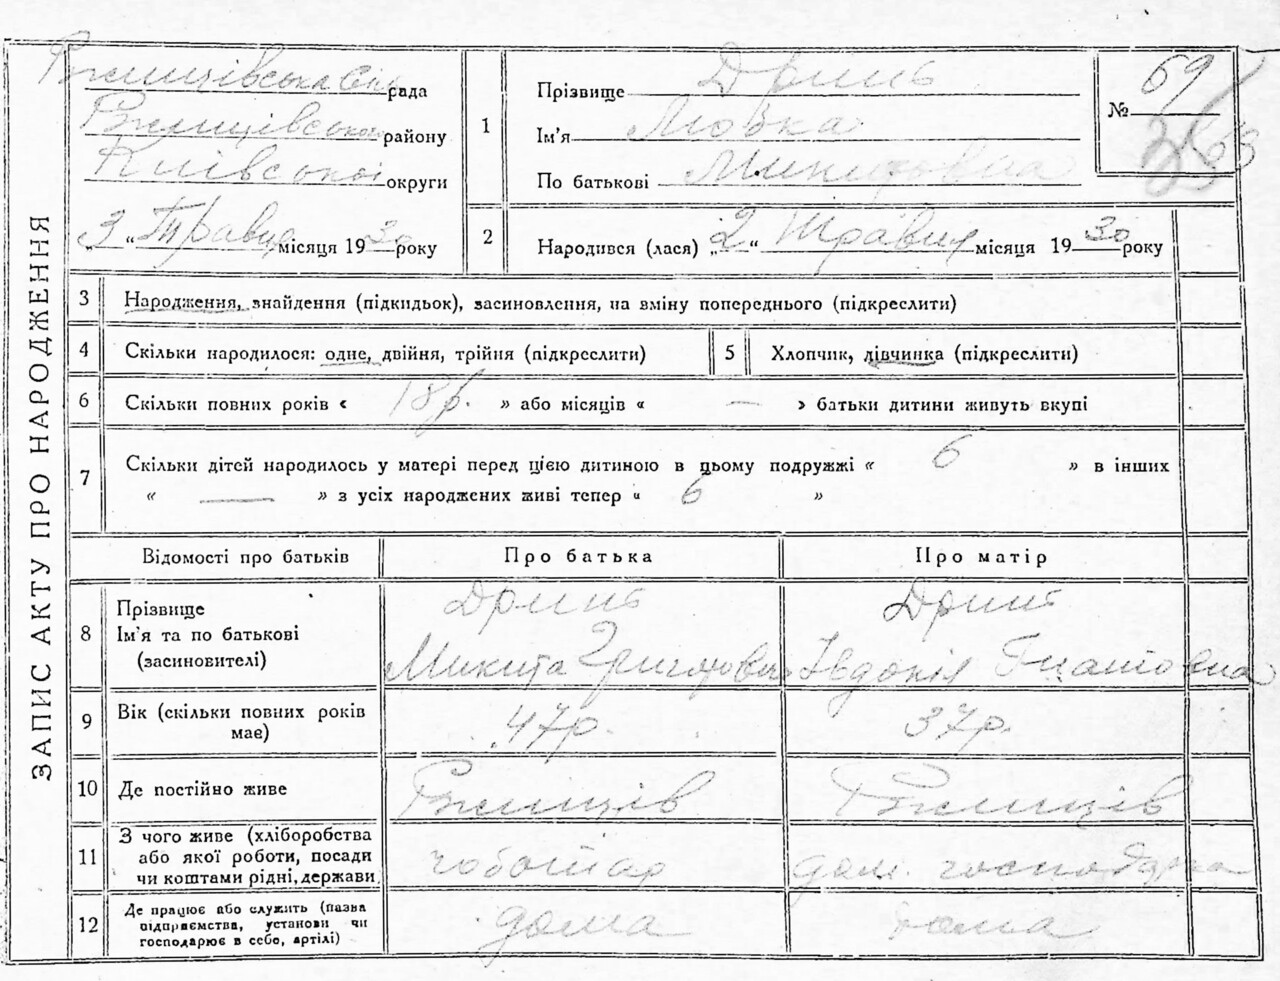 ЗАПИС АКТУ ПРО НАРОДЖЕННЯ
Ржищівська сіл. рада
Ржищівського району
Київської округи
„3“ Травня місяця 1930 року
1
Прізвище Дринь
Ім'я Любка
По батькові Микитовна
№ 69
2
Народився (лася) „2“ Травня місяця 1930 року
3 Народження, знайдення (підкидьок), засиновлення, на вміну попереднього (підкреслити)
4 Скільки народилося: одне, двійня, трійня (підкреслити)
5 Хлопчик, дівчинка (підкреслити)
6 Скільки повних років « 18 р. » або місяців « — » батьки дитини живуть вкупі
7 Скільки дітей народилось у матері перед цією дитиною в цьому подружжі « 6 » в інших
« — » з усіх народжених живі тепер « 6 »
Відомості про батьків Про батька Про матір
8 Прізвище
Ім'я та по батькові
(засиновителі)
Дринь
Микита Григорович
Дринь
Івдокія Гнатовна
9 Вік (скільки повних років
має)
47 р.
37 р.
10 Де постійно живе Ржищів Ржищів
11 З чого живе (хліборобства
або якої роботи, посади
чи коштами рідні, держави
чоботар
дом. господарка
12 Де працює або служить (назва
підприємства, установи чи
господарює в себе, артілі)
дома
дома